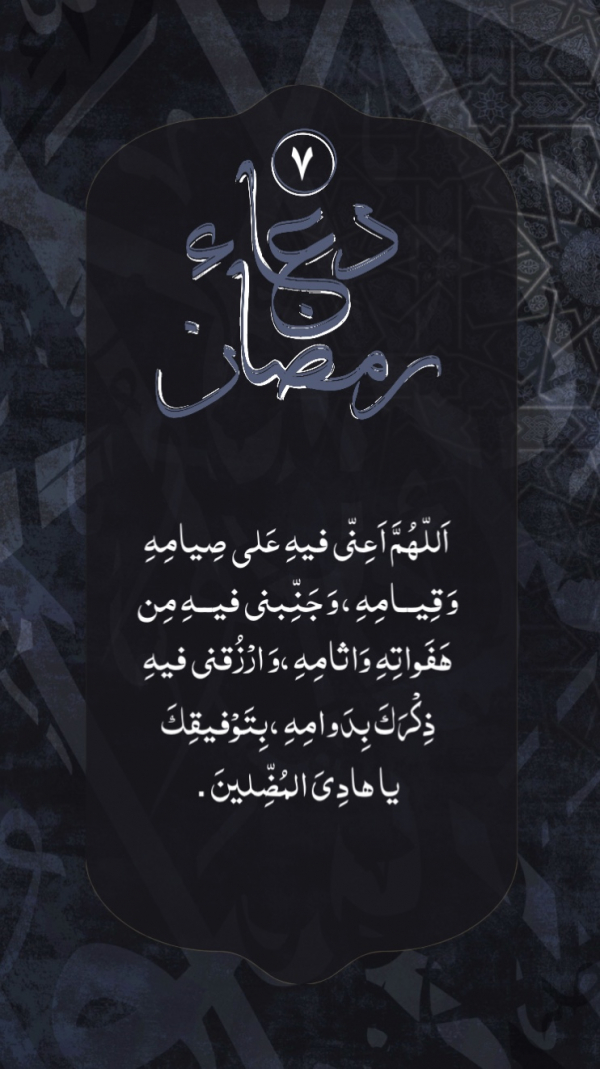 ٧
دعاء
رمضان
اَللّهُمَّ اَعِنّی فیهِ عَلی صِیامِهِ
وَقِیـامِهِ ،وَ جَنِّبنی فیـهِ مِن
هَفَواتِهِ وَاثامِهِ ،وَ ارْزُقنی فیهِ
ذِكْرَكَ بِدَوامِهِ ،بِتَوْفیقِكَ
یا هادِیَ المُضِّلینَ .